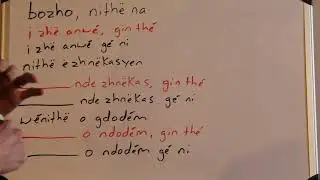 bozho, nithë na
i zhë anwé, gin thé
i zhë anwé gé ni
nithë ezhnëkasyen
_______ nde zhnëkas, gin thé
_______ nde zhnëkas gé ni
wénithë o gdodém
_______ o ndodém, gin thé
_______ o ndodém gé ni